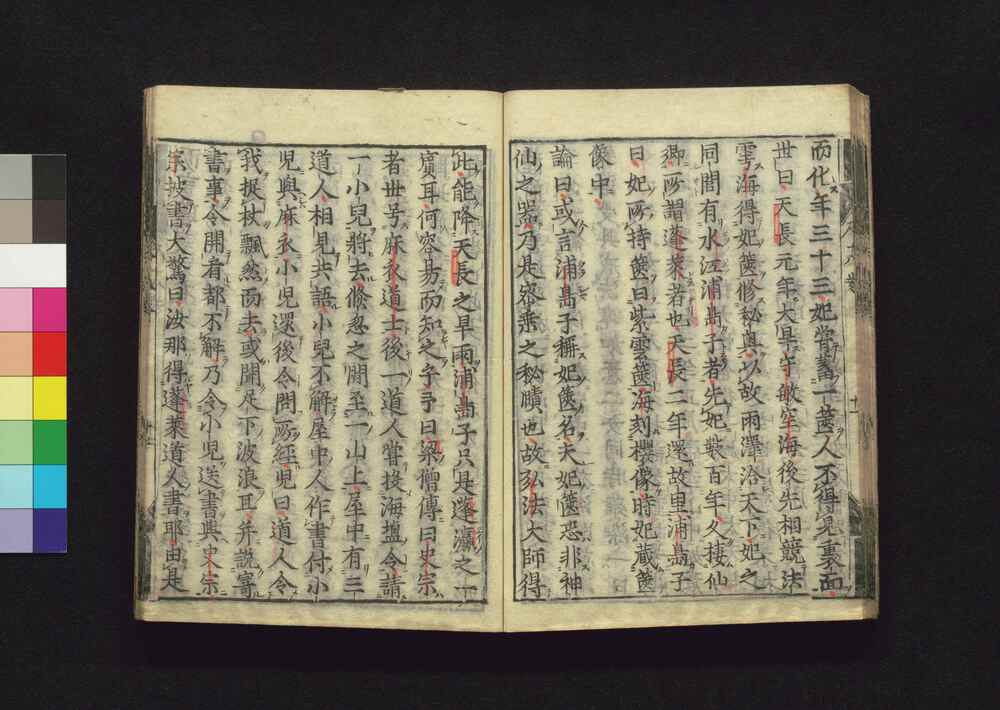 而化年三十三妃嘗蓄一篋人不得見裏面
世曰天長元年大旱守敏空海後先相競法
雩海得妃篋修秘奥以故雨澤洽天下妃之
同閭有水江浦島子者先妃數百年久棲仙
鄉所謂蓬萊者也天長二年還故里浦島子
曰妃所持篋曰紫雲篋海刻櫻像時妃藏篋
像中
論曰或言浦島子稱妃篋名夫妃篋恐非神
仙之器乃是密乘之秘賾也故弘法大師得
此能降天長之旱雨浦島子只是蓬瀛之一
賓耳何容易而知之乎予曰梁僧傳曰史宗
者世号麻衣道士後一道人嘗挍海塩令請
一小兒將去倏忽之間至一山上屋中有三
道人相見共語小兒不解屋中人作書付小
兒與麻衣小兒還後令問所經兒曰道人令
我捉杖飄然而去或聞足下波浪耳并說寄
書事令開看都不解乃令小兒送書與史宗
宗披書大驚曰汝那得蓬萊道人書耶由是